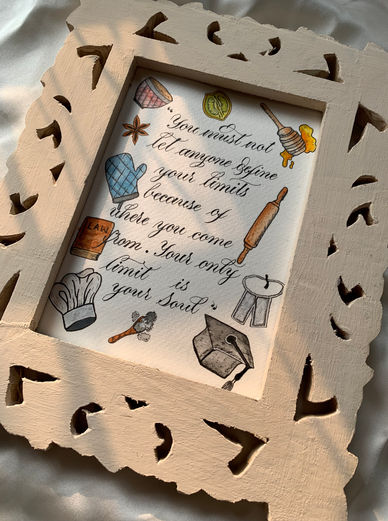 "You must not
let anyone define
your limits
because of
where you come
from. Your only
limit is
your Soul"
LAW